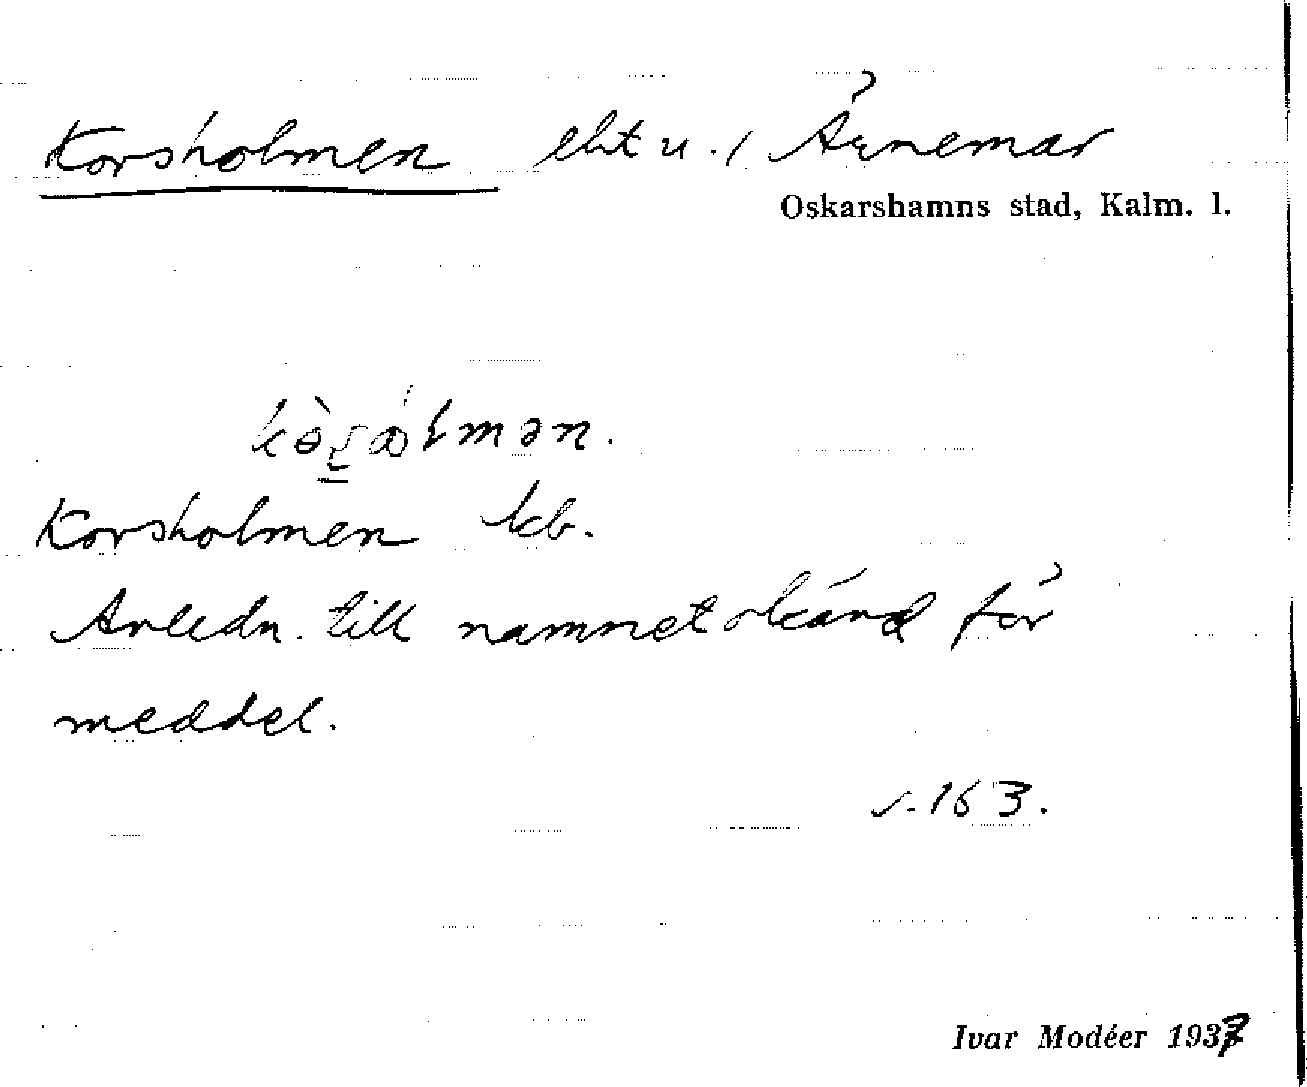 Korsholmen eht u. / Århemar
Oskarshamns stad, Kalm. l.
Korsholmen kb.
Anledn. till namnet okänd för
meddel.
s. 163.
Ivar Modéer 1937